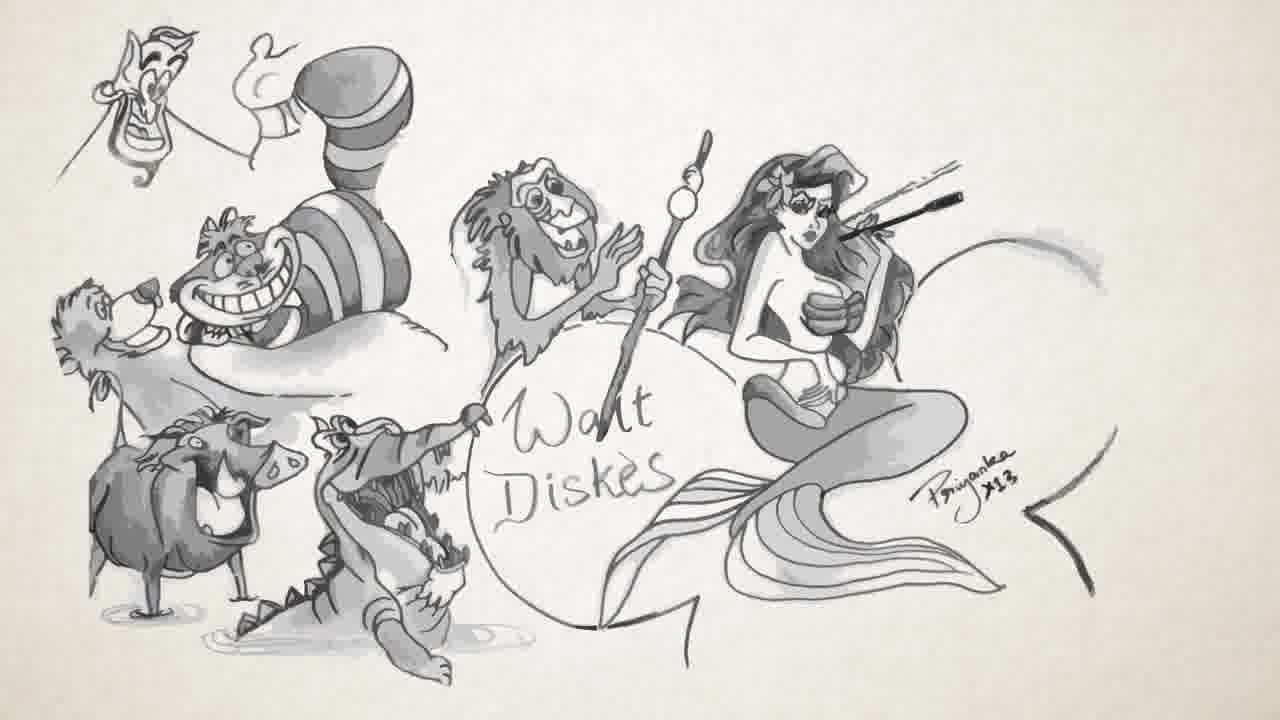 Walt
Diskès
Priyanka
X13